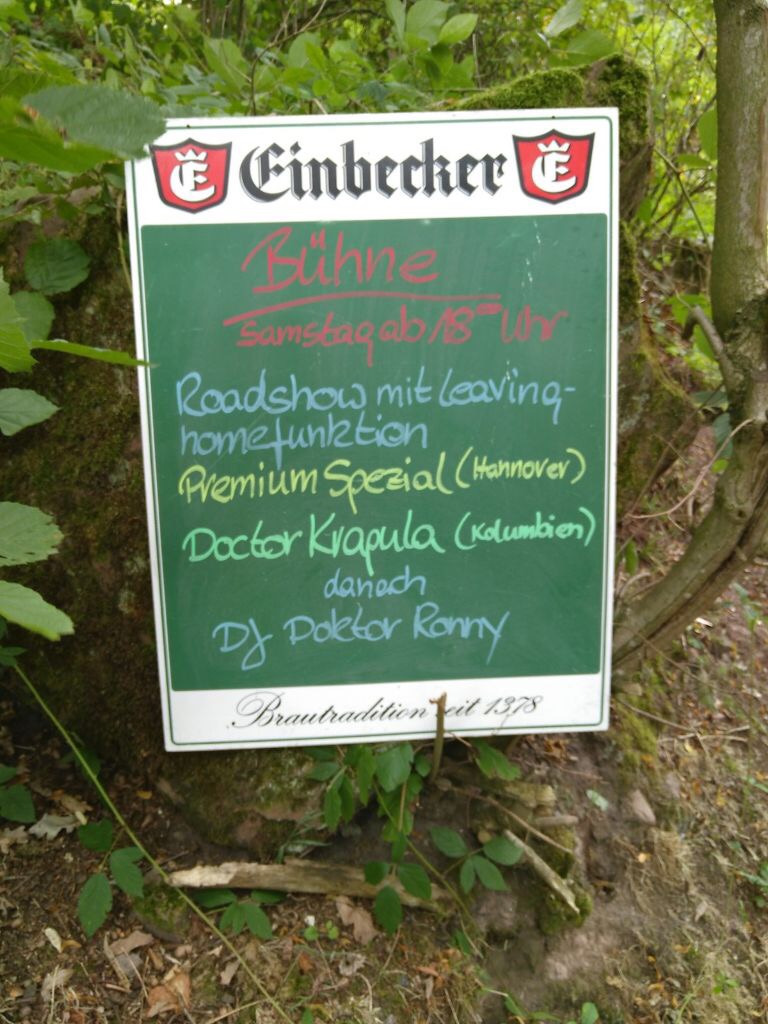 E Einbecker E
Bühne
Samstag ab 18⁰⁰ Uhr
Roadshow mit leaving-
homefunktion
Premium Spezial (Hannover)
Doctor Krapula (Kolumbien)
danach
DJ Doktor Ronny
Brautradition seit 1378